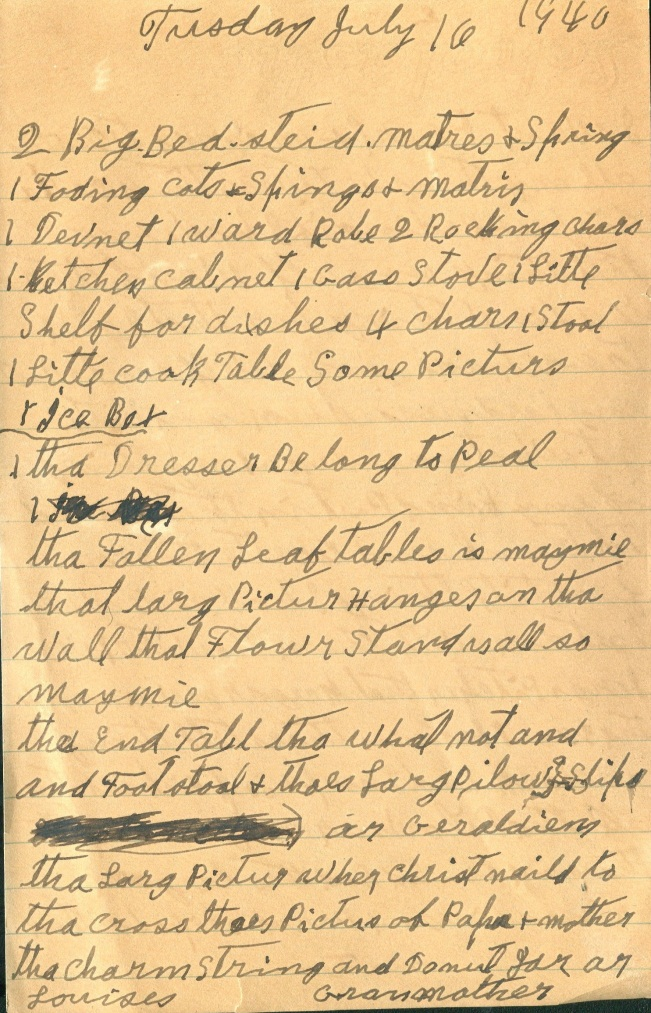 Tusday July 16 1940
2 Big. Bed. steid. matres & Spring
1 Foding cots & Springs & matris
1 Devnet 1 ward Robe 2 Rocking chars
1 Ketchen cabnet 1 Gass Stove 1 Little
Shelf for dishes 4 chars 1 Stool
1 Little cook Table Some Picturs
1 Ice Box
1 tha Dresser Belong to Peal
1
tha Fallen Leaf tables is maymie
that larg Pictur Hanges on tha
wall that Flowr Stand is all so
maymie
the End Tabl tha what not and
and Foot stool & thoes Larg Pilow & Slips
ar Geraldiens
tha Larg Pictur wher Christ naild to
tha cross thoes Pictus of Papa & mother
tha charm String and Donut Jar ar
Louises Granmother